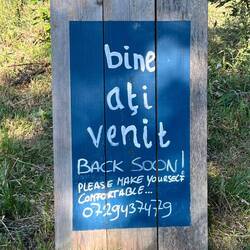 bine
ați
venit
BACK SOON!
PLEASE MAKE YOURSELF
COMFORTABLE...
0729437429